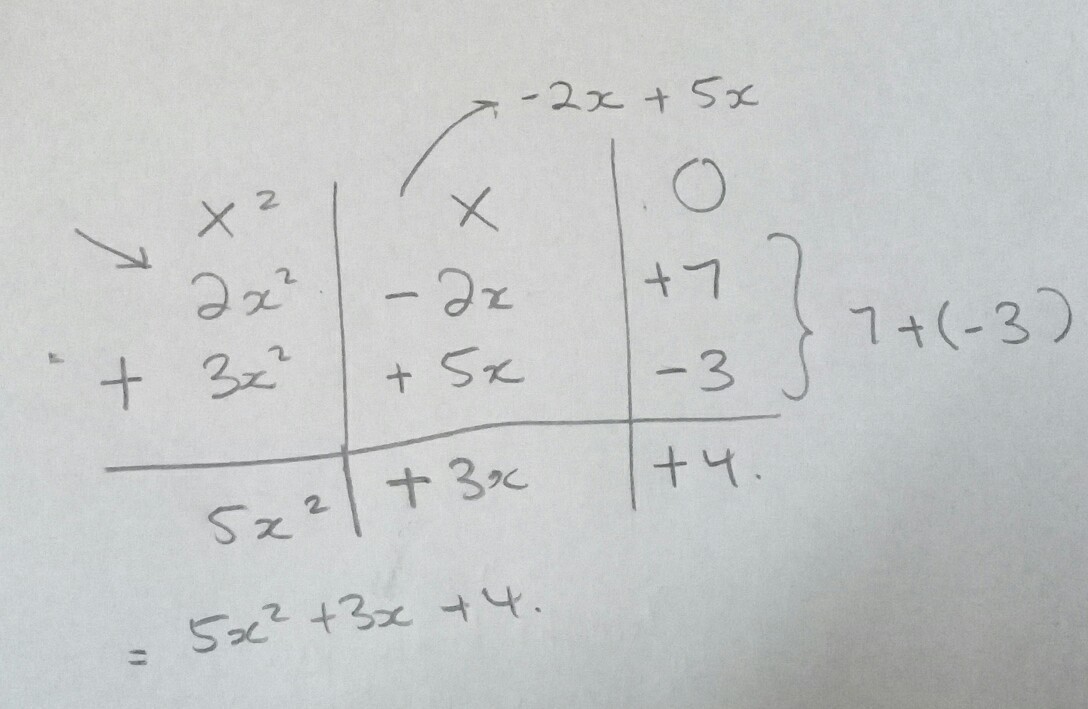 -2x + 5x
x² x 0
2x² - 2x +7
+ 3x² + 5x -3
7+(-3)
5x² + 3x +4.
= 5x² +3x +4.